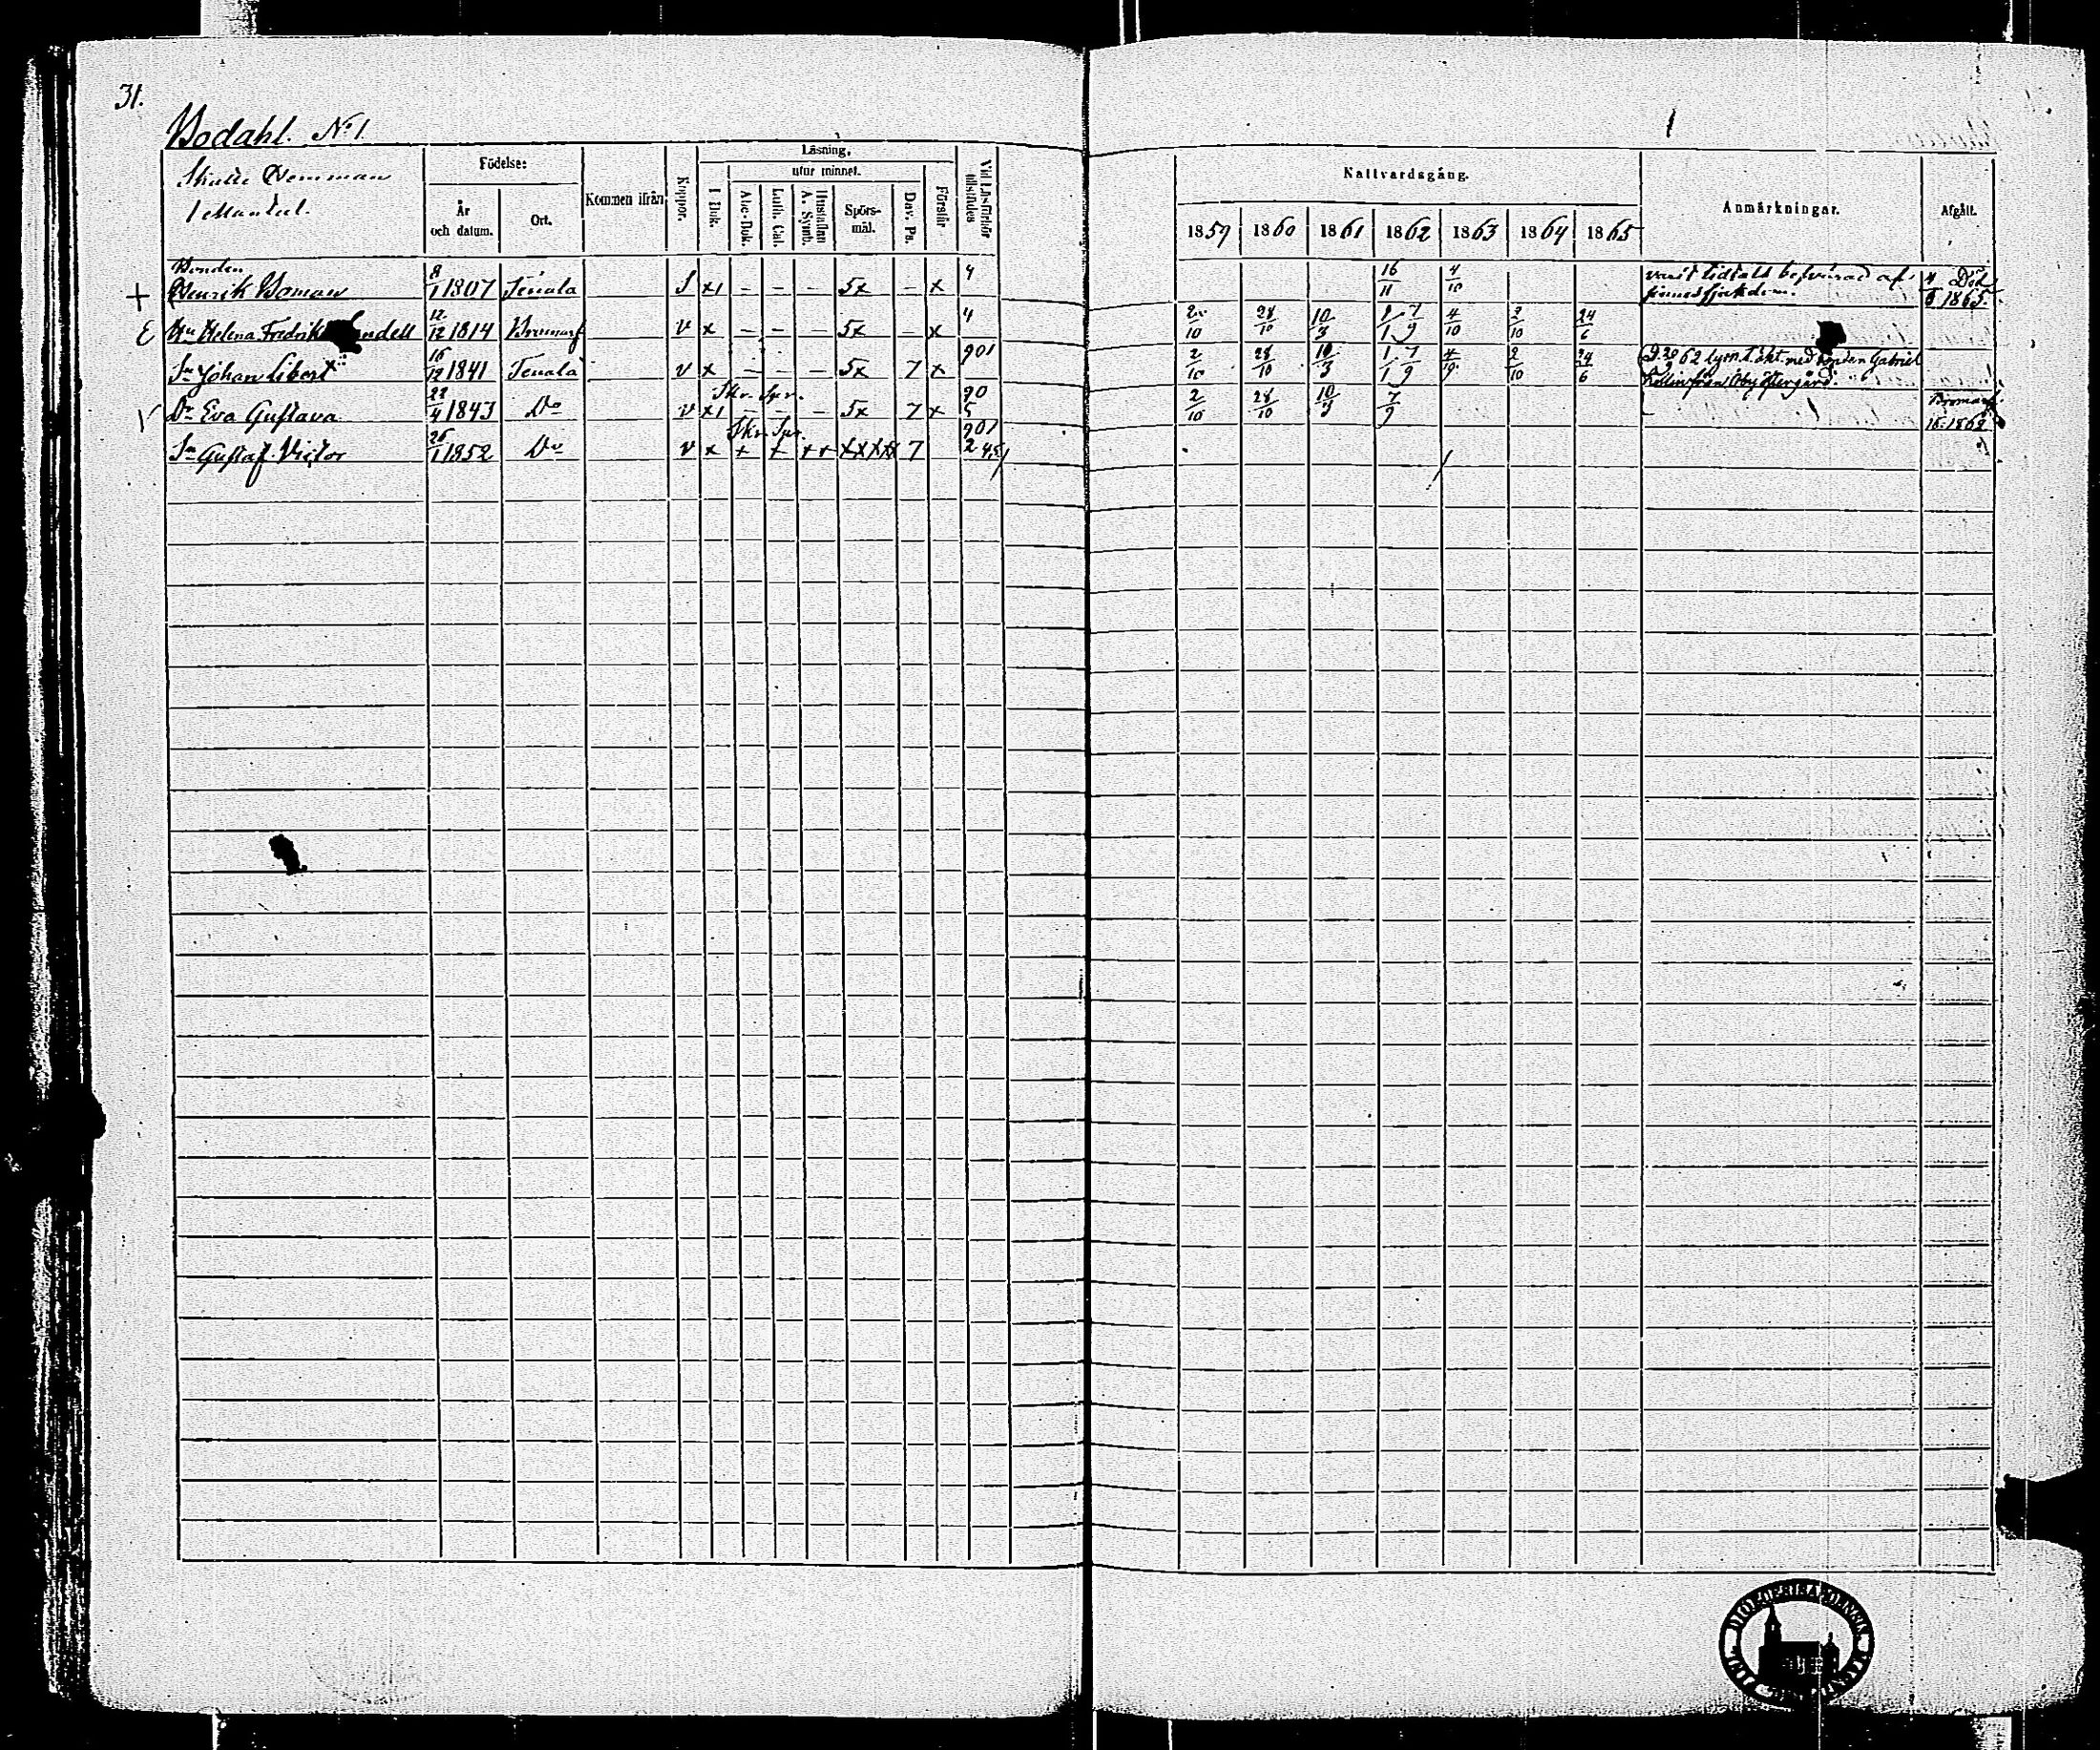 31.
Bodahl. No 1.
1
Skatte Hemman
1 Mantal.
Födelse:
År och datum.
Ort.
Kommen ifrån
Koppor.
Läsning,
utur minnet.
I Bok.
Abc-Bok.
Luth. Cat.
Hustaflan A. Symb.
Spörsmål.
Dav. Ps.
Förstår
Vid Läsförhör tillstädes
Nattvardsgång.
1859 1860 1861 1862 1863 1864 1865
Anmärkningar.
Afgått.
Bonden
+ Henrik Boman 8/1 1807 Tenala S x1 – – – 5x – x 4 16/11 4/10 varit tidtals besvärad af sinnessjukdom. 4/6 Död 1865.
E Hu Helena Fredrika 12/12 1814 Bromarf v x – – – 5x – x 4 2/10 28/10 10/3 1/1 7/9 4/10 2/10 24/6
Sn Johan Libert 16/12 1841 Tenala v x – – – 5x 7 x 901 2/10 28/10 10/3 1/1 7/9 4/10 2/10 24/6
med bonden Gabriel
från
Skr. Spr.
Dr Eva Gustava 22/4 1843 Do v x1 – – – 5x 7 x 90 5 2/10 28/10 10/3 7/9 Bromarf 1862
Skr. Spr.
Sn Gustaf Victor 26/1 1852 Do v x + + ++ xxxx 7 901 2 4,5